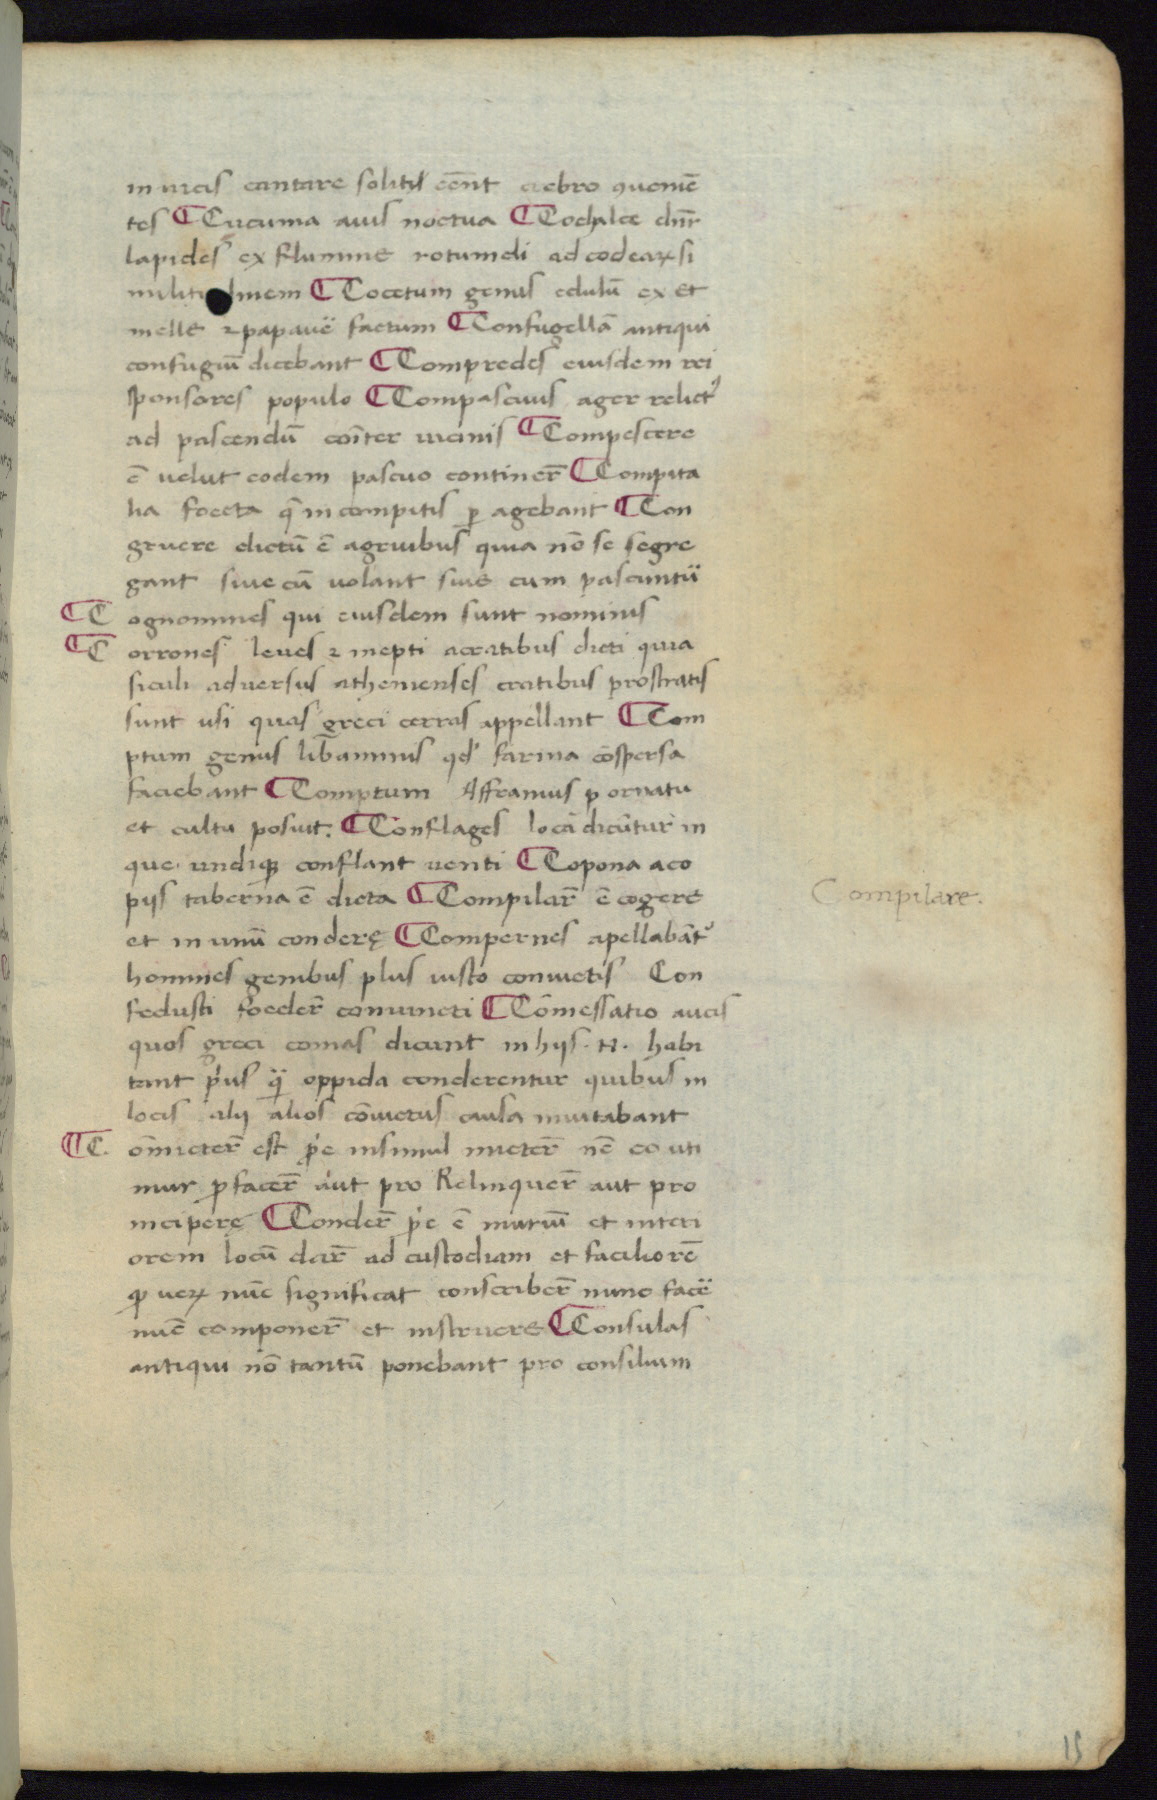 in vicis cantare solitis eēnt crebro quenīe
tes ¶ Cucuma auis noctua ¶ Cochalce dnr̄
lapides ex flumine rotumdi ad codearꝝ si
militu dinem ¶ Cocetum genus edulū ex et
melle ⁊ papaue᷑ factum ¶ Confugellā antiqui
confugiū dicebant ¶ Compredes eiusdem rei
sponsores populo ¶ Compascuus ager relictꝰ
ad pascendū coīter uicinis ¶ Compescere
ē velut eodem pascuo continer̄ ¶ Compita
lia foecta q̄ in compitis ꝑ agebant ¶ Con
gruere dictū ē agruibus quia nō se segre
gant siue cū uolant siue cum pascuntu᷑
¶ C ognomines qui eiusdem sunt nominis
¶ C orrones leues ⁊ inepti acratibus dicti quia
siculi adversus athenienses cratibus prostratis
sunt usi quas greci cerras appellant ¶ Com
ptum genus libaminis qđ farina cōspersa
faciebant ¶ Comptum Affranius ꝓ ornatu
et cultu posuit. ¶ Conflages loca dicūtur in
que undiqꝫ conflant venti ¶ Copona a co
pijs taberna ē dicta ¶ Compilar̄ ē cogere
et in unū conderę ¶ Compernes apellabātꝰ
homines genibus plus iusto coniuctis Con
fedusti foeder̄ coniuncti ¶ Cōmessatio aucis
quos greci comas dicunt in hijs .N. habi
tant pꝰus q̄ oppida conderentur quibus in
locis alij alios cōuictus causa inuitabant
¶ C. ōmicter̄ est ṗe insimul micter̄ nc̄ eo uti
mur ꝓ facer̄ aut pro Relinquer̄ aut pro
inciperę ¶ Conder̄ ṗe ē muriū et interi
orem locū dar̄ ad custodiam et faciliorē
ꝓ uerꝝ nūc significat conscriber̄ nunc face᷑
nūc componer̄ et instruere ¶ Consulas
antiqui nō tantū ponebant pro consilium
Compilare.
15